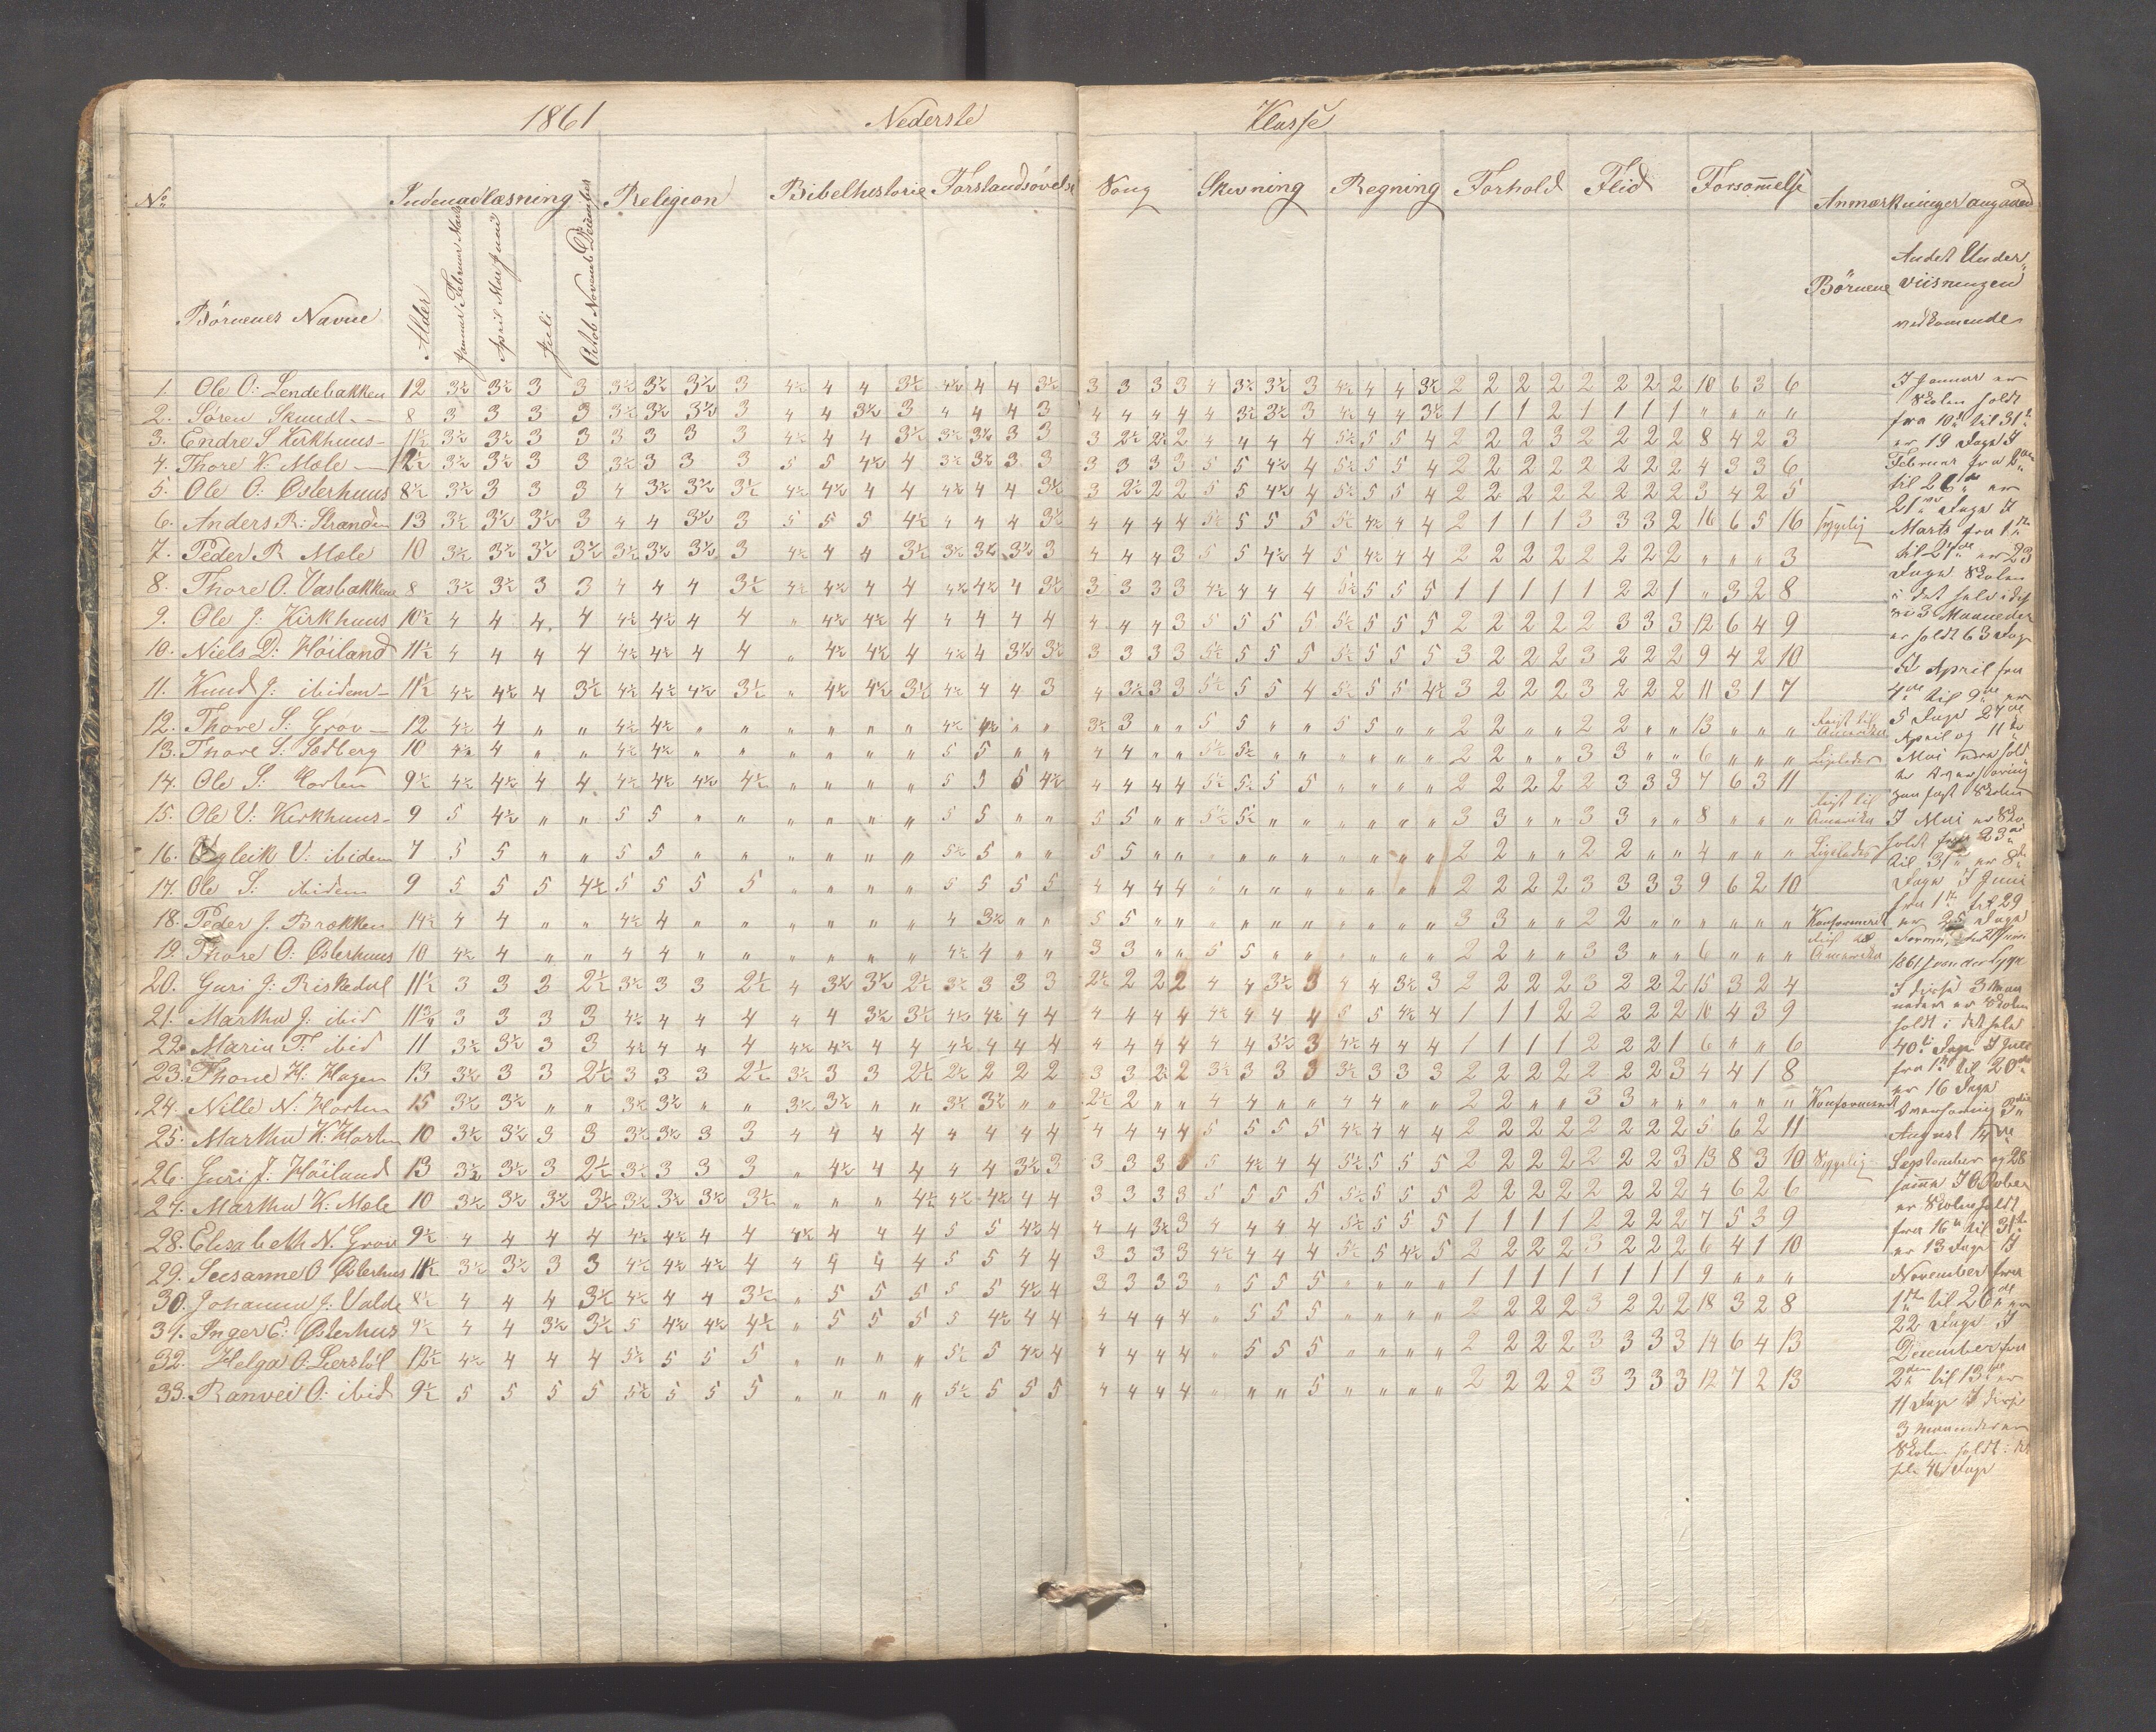 1861 Nederste Klasse
No Indenadlæsning Religion Bibelhistorie Forstandsøvelse Sang Skrivning Regning Forhold Flid Forsømmelse Anmærkninger angaaende
Børnenes Navne Alder Januar Februar Marts April Mai Juni Juli Octob. Novemb. December Børnene Andet Underviisningen vedkommende
1. Ole O: Lendebakken 12 3½ 3½ 3 3 3½ 3½ 3½ 3 4½ 4 4 3½ 4½ 4 4 3½ 3 3 3 3 4 3½ 3½ 3 4½ 4 4 3½ 2 2 2 2 2 2 2 2 10 6 3 6
2. Søren Skundt 8 3 3 3 3 3½ 3½ 3½ 3 4 4 3½ 3 4 4 4 3 4 4 4 4 4 3½ 3½ 3 4½ 4 4 3½ 1 1 1 2 1 1 1 1 " " " "
3. Endre S. Kirkhuus 11½ 3½ 3½ 3 3 3 3 3 3 4½ 4 4 3½ 3½ 3½ 3 3 3 2½ 2½ 2 4 4 4 4 5½ 5 5 4 2 2 2 3 2 2 2 2 8 4 2 3
4. Thore K: Mæle 12½ 3½ 3½ 3 3 3½ 3 3 3 5 5 4½ 4 3½ 3½ 3 3 3 3 3 3 5 5 4½ 4 5½ 5 5 4 2 2 2 2 2 2 2 2 4 3 3 6
5. Ole O: Østerhuus 8½ 3½ 3 3 3 4 3½ 3½ 3½ 4½ 4½ 4 4 4½ 4 4 3½ 3 2½ 2 2 5 5 4½ 4 5½ 5 5 4 2 2 2 2 2 2 2 2 3 4 2 5
6. Anders R: Stranden 13 3½ 3½ 3½ 3 4 4 3½ 3 5 5 5 4½ 4 4 4 3½ 4 4 4 4 5½ 5 5 5 5½ 4½ 4 4 2 1 1 1 3 3 3 2 16 6 5 16 Sygelig
7. Peder R Mæle 10 3½ 3½ 3½ 3½ 3½ 3½ 3½ 3 4½ 4 4 3½ 3½ 3½ 3½ 3 4 4 4 3 5 5 4½ 4 5 4½ 4 4 2 2 2 2 2 2 2 2 " " " 3
8. Thore O. Vasbakken 8 3½ 3½ 3 3 4 4 4 3½ 4½ 4½ 4 4 4½ 4½ 4 3½ 3 3 3 3 4½ 4 4 4 5½ 5 5 5 1 1 1 1 1 2 2 1 " 3 2 8
9. Ole J: Kirkhuus 10½ 4 4 4 4 4½ 4½ 4 4 " 4½ 4½ 4 4 4 4 4 4 4 4 3 5 5 5 5 5½ 5 5 5 2 2 2 2 2 3 3 3 12 6 4 9
10. Niels D: Høiland 11½ 4 4 4 4 4½ 4½ 4 4 " 4½ 4½ 4 4½ 4 3½ 3½ 3 3 3 3 5½ 5 5 5 5½ 5 5 5 3 2 2 2 3 2 2 2 9 4 2 10
11. Knud J: ibidem 11½ 4½ 4½ 4 3½ 4½ 4½ 4½ 3½ " 4½ 4½ 3½ 4½ 4 4 3 4 3½ 3 3 5½ 5 5 4 5½ 5 5 4½ 3 2 2 2 3 2 2 2 11 3 1 7
12. Thore S: Grov 12 4½ 4 " " 4½ 4½ " " " " " " 4½ 4½ " " 3½ 3 " " 5 5 " " 5 5 " " 2 2 " " 2 2 " " 13 " " " Reist til Amerika
13. Thore S: Sedberg 10 4½ 4 " " 4½ 4½ " " " " " " 5 5 " " 4 4 " " 5½ 5½ " " " " " " 2 2 " " 3 3 " " 6 " " " Ligeledes
14. Ole S: Horten 9½ 4½ 4½ 4 4 4½ 4½ 4½ 4½ " " " " 5 5 5 4½ 4 4 4 4 5½ 5½ 5 5 " " " " 2 2 2 2 2 3 3 3 7 6 3 11
15. Ole V: Kirkhuus 9 5 4½ " " 5 5 " " " " " " 5 5 " " 5 5 " " 5½ 5½ " " " " " " 3 3 " " 3 3 " " 8 " " " Reist til Amerika
16. Ogleik V: ibidem 7 5 5 " " 5 5 " " " " " " 5½ 5 " " 5 5 " " " " " " " " " " 2 2 " " 2 2 " " 4 " " " Ligeledes
17. Ole S: ibidem 9 5 5 5 4½ 5 5 5 5 " " " " 5 5 5 5 4 4 4 4 " " " " " " " " 2 2 2 2 3 3 3 3 9 6 2 10
18. Peder J. Brækken 14½ 4 4 " " 4½ 4 " " " " " " 4 3½ " " 5 5 " " " " " " " " " " 3 3 " " 2 2 " " " " " " Konformeret
19. Thore O: Østerhuus 10 4½ 4 " " 4 4 " " " " " " 4½ 4 " " 3 3 " " 5 5 " " " " " " 2 2 " " 3 3 " " 6 " " " Reist til Amerika
20. Guri J: Riskedal 11½ 3 3 3 2½ 3½ 3 3 2½ 4 3½ 3½ 2½ 3½ 3 3 3 2½ 2 2 2 4 4 3½ 3 4 4 3½ 3 2 2 2 2 3 2 2 2 15 3 2 4
21. Martha J: ibid 11¾ 3 3 3 3 4½ 4 4 4 4 4 3½ 3½ 4½ 4½ 4 4 4 4 4 4 4½ 4 4 4 5 5 4½ 4 1 1 1 2 2 2 2 2 10 4 3 9
22. Maria T: ibid 11 3½ 3½ 3 3 4½ 4 4 4 4½ 4½ 4 4 4½ 4 4 4 4 4 4 4 4 4 3½ 3 4½ 4 4 4 1 1 1 1 2 2 2 1 6 " " 6
23. Thone H. Hagen 13 3½ 3 3 2½ 3 3 3 2½ 3½ 3 3 2½ 2½ 2 2 2 3 3 2½ 2 3½ 3 3 3 3½ 3 3 3 2 2 2 2 2 2 2 3 4 4 1 8
24. Nille N: Horten 15 3½ 3½ " " 3½ 3½ " " 3½ 3½ " " 3½ 3½ " " 2½ 2 " " 4 4 " " 4 4 " " 2 2 " " 3 3 " " " " " " Konformeret
25. Martha K: Horten 10 3½ 3½ 3 3 3½ 3½ 3 3 4 4 4 4 4 4 4 4 4 4 4 4 5 5 5 5 4½ 4 4 4 2 2 2 2 2 2 2 2 5 6 2 11
26. Guri J: Høiland 13 3½ 3½ 3 2½ 3½ 3 3 3 " 4½ 4 4 4 4 3½ 3 3 3 3 3 5 4½ 4 4 5½ 5 5 5 2 2 2 2 2 2 2 3 13 8 3 10 Sygelig
27. Martha K: Mæle 10 3½ 3½ 3½ 3½ 3½ 3½ 3½ 3½ " " " 4½ 4½ 4½ 4 4 3 3 3 3 5 5 5 5 5½ 5 5 5 2 2 2 2 2 2 2 2 4 6 2 6
28. Elisabeth N. Grov 9½ 4 4 4 4 4½ 4½ 4 4 4½ 4 4 4 5 5 4½ 4 4 4 3½ 3 4 4 4 4 5½ 5 5 5 1 1 1 1 2 2 2 2 7 5 3 9
29. Seesanne O Østerhus 11½ 3½ 3½ 3 3 4½ 4½ 4½ 4 4 4 4 4 5 5 4 4 3 3 3 3 4½ 4 4 4 5½ 5 4½ 5 2 2 2 2 3 2 2 2 6 4 1 10
30. Johanna J: Valde 8½ 4 4 4 3½ 4½ 4 4 3½ " 5 5 5 5 5 4½ 4 3 3 3 3 " 5 5 5 " " " " 1 1 1 1 1 1 1 1 9 " " "
31. Inger E: Østerhus 9½ 4 4 3½ 3½ 5 4½ 4½ 4½ " 5 5 5 5 4½ 4 4 4 4 4 4 " 5 5 5 " " " " 2 2 2 2 3 2 2 2 18 3 2 8
32. Helga O. Lierstøl 12½ 4½ 4 4 4 5½ 5 5 5 " " " " 5½ 5 4½ 4 4 4 4 4 " 5 5 5 " " " " 2 2 2 2 3 3 3 3 14 6 4 13
33. Ranvei O: ibid 9½ 5 5 5 5 5½ 5 5 5 " " " " 5½ 5 5 5 4 4 4 4 " " " 5 " " " " 2 2 2 2 3 3 3 3 12 7 2 13
I Januar er
Skolen holdt
fra 10de til 31te
er 19 Dage I
Februar fra 2den
til 26de er
21 Dage I
Marts fra 1ste
til 27de er 23
Dage Skolen
i det hele i disse
3 Maaneder
er holdt 63 Dage
I April fra
4de til 9de er
5 Dage 24de
April og 11te
Mai
Skolen
I Mai er Skolen
holdt fra 23de
til 31te er 8te
Dage I Juni
fra 1ste til 29
er 25 Dage
1861
I disse 3 Maaneder
er Skolen
holdt i det hele
40 Dage I Juli
fra 1ste til 20de
er 16 Dage
August 14de
September og 28
samme I October
er Skolen holdt
fra 16de til 31te
er 13 Dage I
November fra
1ste til 26de er
22 Dage I
December fra
2den til 13de er
11 Dage I disse
3 Maaneder er
Skolen holdt i det
hele 46 Dage